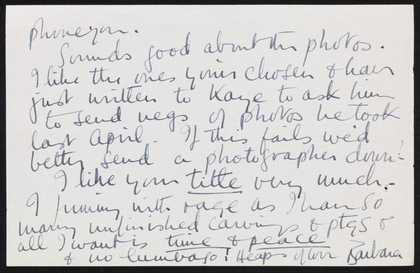 phone you.
Sounds good about the photos.
I like the ones you've chosen & have
just written to Kaye to ask him
to send negs of photos he took
last April. If this fails we'd
better send a photographer down!
I like your title very much.
I with rage as I have so
many unfinished carvings & ptgs &
all I want is time & peace
& no lumbago! Heaps of love Barbara